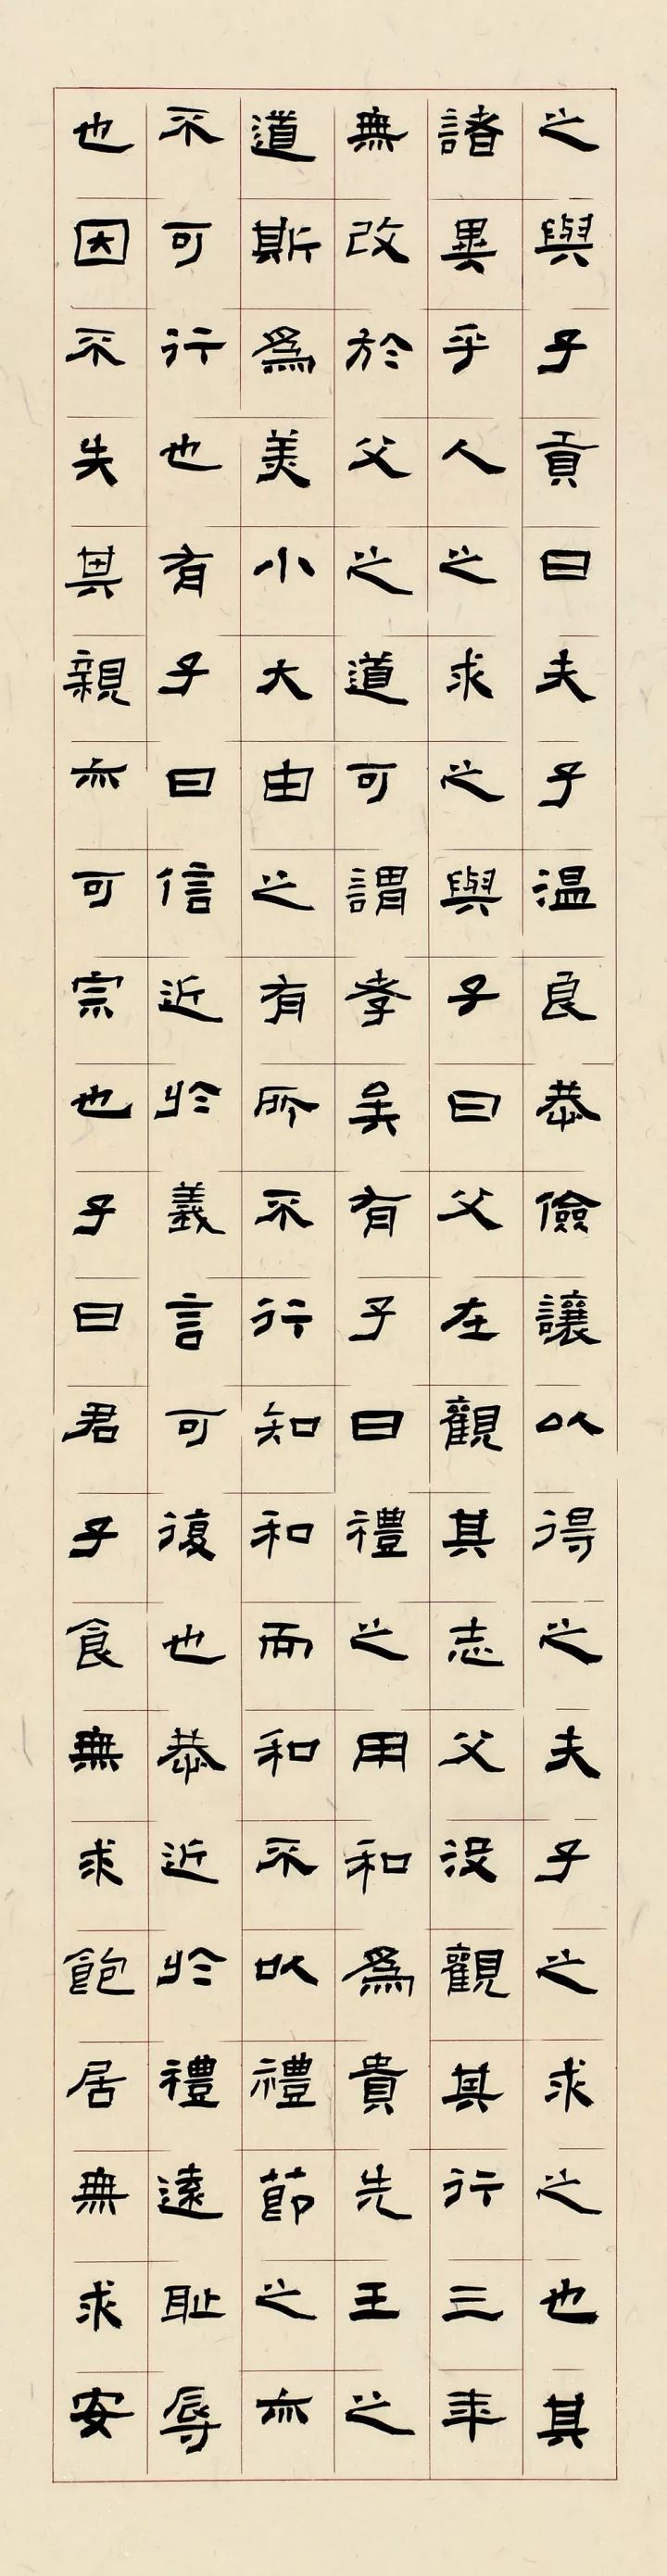 之與子貢曰夫子温良恭儉讓以得之夫子之求之也其
諸異乎人之求之與子曰父在觀其志父没觀其行三年
無改於父之道可謂孝矣有子曰禮之用和為貴先王之
道斯為美小大由之有所不行知和而和不以禮節之亦
不可行也有子曰信近於義言可復也恭近於禮遠恥辱
也因不失其親亦可宗也子曰君子食無求飽居無求安